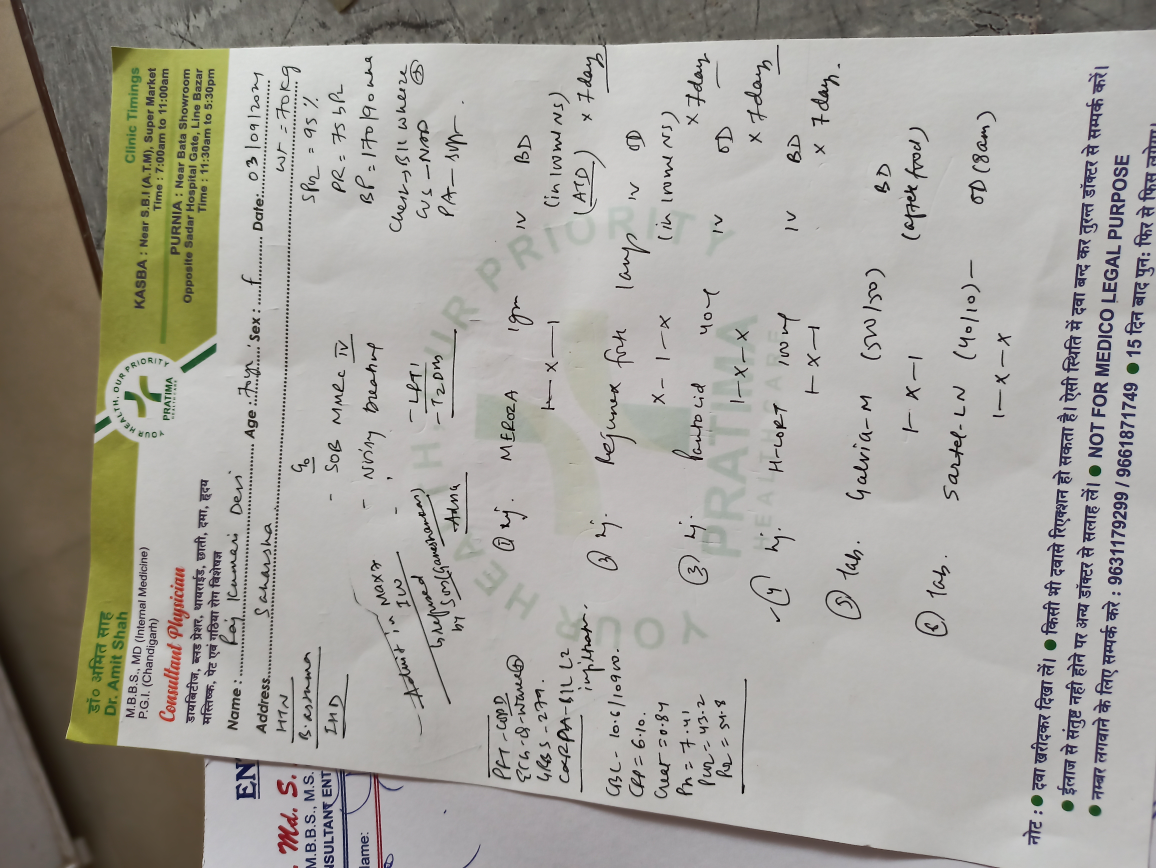 डॉ० अमित साह
Dr. Amit Shah
M.B.B.S., MD (Internal Medicine)
P.G.I. (Chandigarh)
Consultant Physician
डायबिटीज, ब्लड प्रेशर, थायराईड, छाती, दमा, हृदय
मस्तिष्क, पेट एवं गठिया रोग विशेषज्ञ
YOUR HEALTH, OUR PRIORITY
PRATIMA
Clinic Timings
KASBA : Near S.B.I (A.T.M), Super Market
Time : 7:00am to 11:00am
PURNIA : Near Bata Showroom
Opposite Sadar Hospital Gate, Line Bazar
Time : 11:30am to 5:30pm
Name : Raj Kumari Devi Age : 70yr Sex : f Date: 03/09/2024
Address Saharsha Wt = 70kg
HTN
IHD
C/o
- SOB MMRC IV
- Noisy breathing
SPO2 = 95%
PR = 75 bpm
BP = 170/90
CVS - NAD
- Admit in Max 7
ICU
refused
by son
- LFT
PFT - COPD
CRP = 6.10
Creat = 0.84
PH = 7.41
① Inj. MEROZA 1gm IV BD
1-x-1 (in 100ml NS)
(ATD) x 7day
② Inj. 1amp IV OD
x-1-x (in 100ml NS)
x 7day
③ Inj. Pantocid 40mg IV OD
1-x-x x 7day
④ Inj. H-CORT 100mg IV BD
1-x-1 x 7day.
⑤ Tab. Galvia-M (50/500) BD
1-x-1 (after food)
⑥ Tab. Sartel-LN (40/10) - OD (8am)
1-x-x
YOUR HEALTH, OUR PRIORITY
PRATIMA
HEALTHCARE
नोट : ● दवा खरीदकर दिखा लें। ● किसी भी दवासे रिएक्शन हो सकता है। ऐसी स्थिति में दवा बन्द कर तुरन्त डॉक्टर से सम्पर्क करें।
● ईलाज से संतुष्ट नही होने पर अन्य डॉक्टर से सलाह लें। ● NOT FOR MEDICO LEGAL PURPOSE
● नम्बर लगवाने के लिए सम्पर्क करे : 9631179299 / 9661871749 ● 15 दिन बाद पुन: फिर से फिस लगेगा
EN
Md. S.
M.B.B.S., M.S.
NSULTANT ENT
lame: